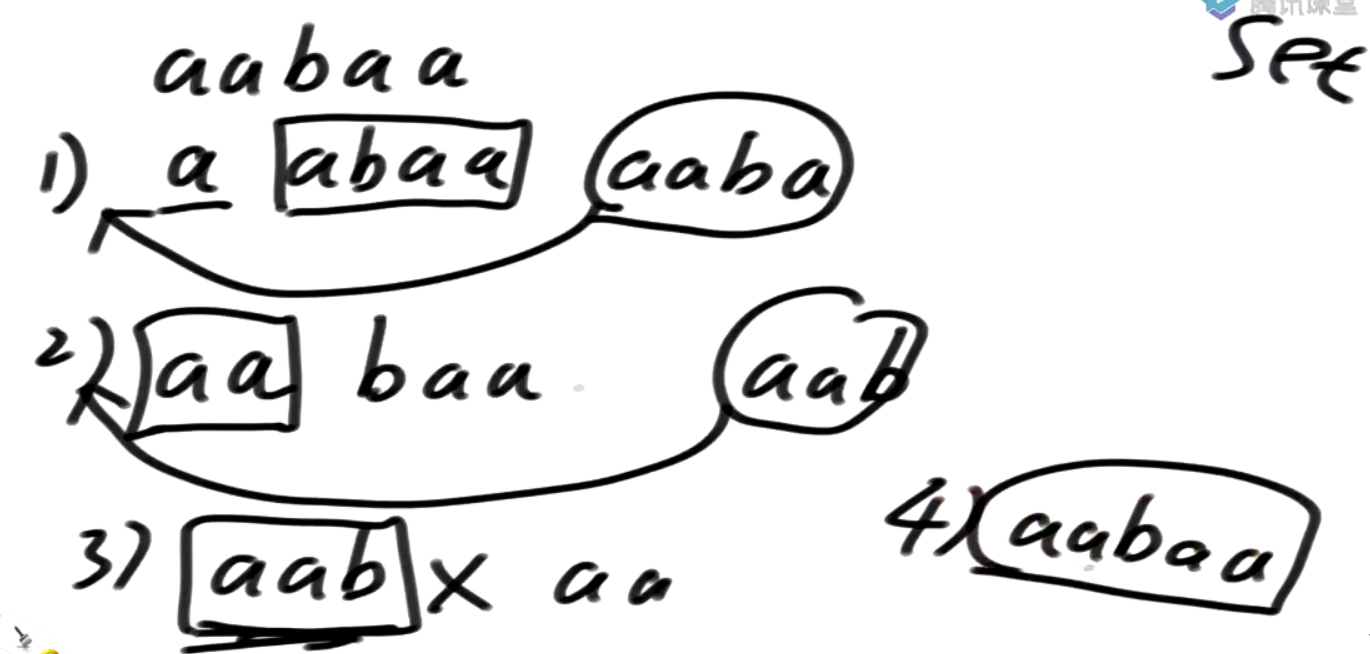 腾讯课堂
Set
aabaa
1) a abaa aaba
2) aa baa aab
3) aab x aa
4) aabaa